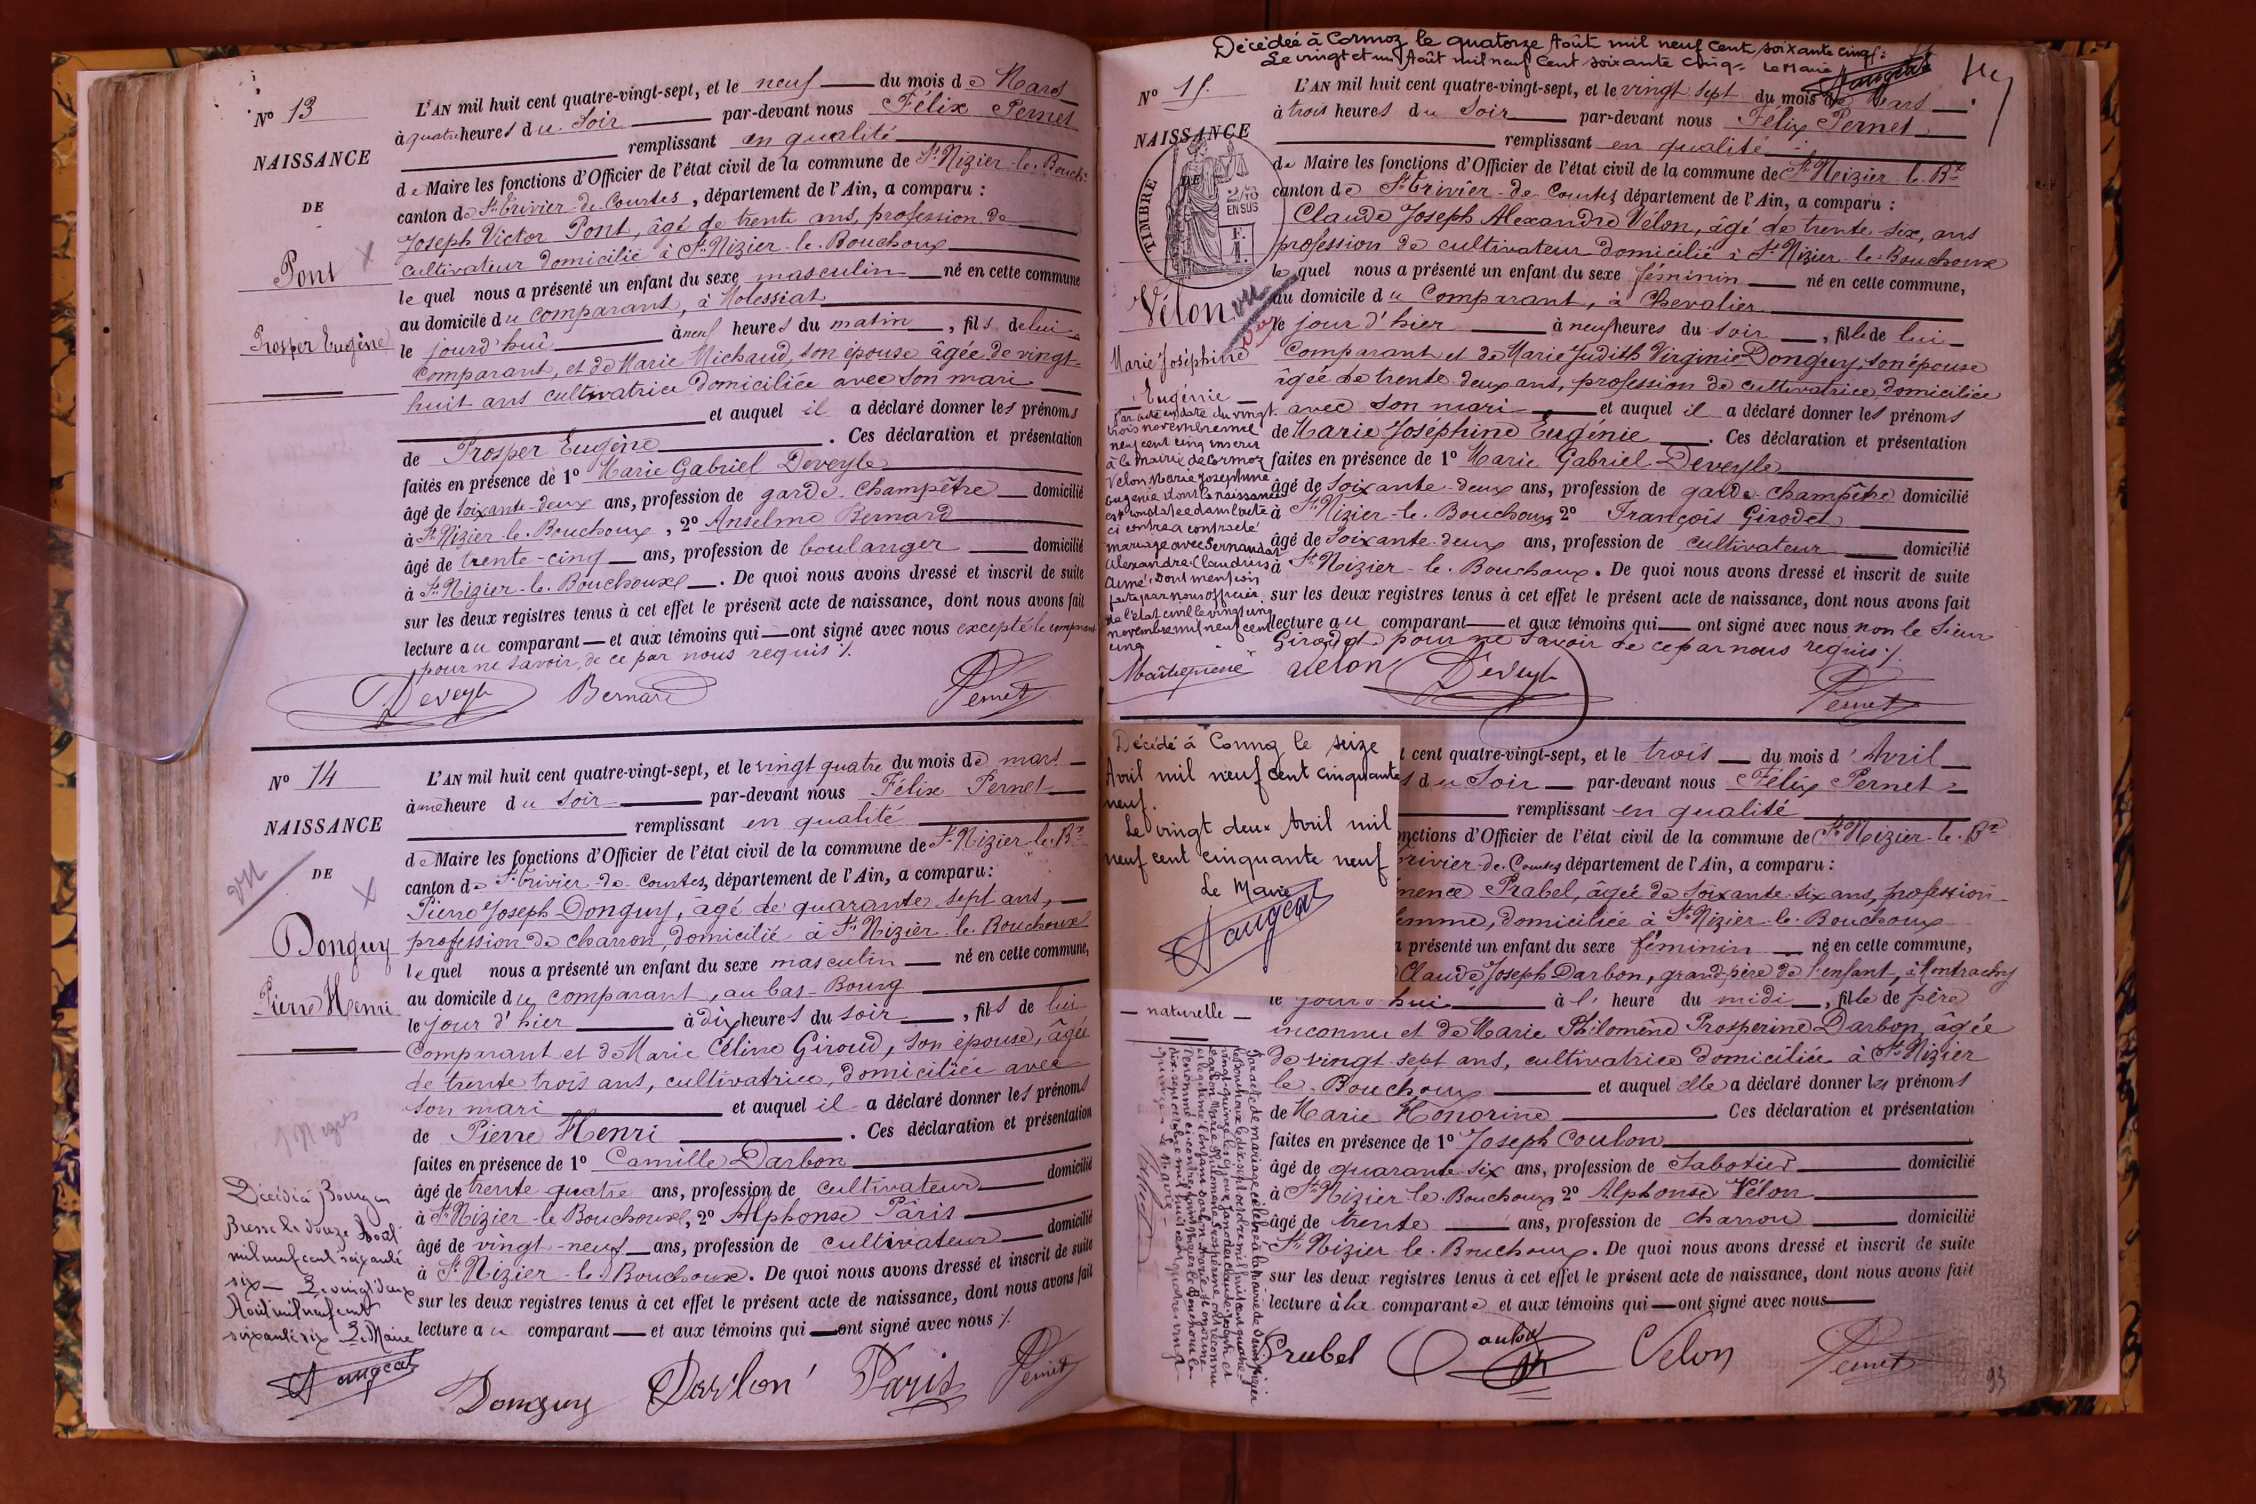 Nº 13
NAISSANCE
DE
Pont
Prosper Eugène
L'AN mil huit cent quatre-vingt-sept, et le neuf du mois de Mars
à quatre heures du Soir par-devant nous Félix Pernet
remplissant en qualité
de Maire les fonctions d'Officier de l'état civil de la commune de St Nizier-le-Bouch.
canton de St Trivier-de-Courtes, département de l'Ain, a comparu :
Joseph Victor Pont, âgé de trente ans, profession de
cultivateur domicilié à St Nizier-le-Bouchoux
le quel nous a présenté un enfant du sexe masculin né en cette commune
au domicile du comparant, à Molessiat
le jourd'hui à neuf heures du matin, fils de lui
comparant, et de Marie Michaud, son épouse âgée de vingt-
huit ans cultivatrice domiciliée avec son mari
et auquel il a déclaré donner les prénoms
de Prosper Eugène . Ces déclaration et présentation
faites en présence de 1º Marie Gabriel Deveyle
âgé de soixante-deux ans, profession de garde-champêtre domicilié
à St Nizier-le-Bouchoux, 2º Anselme Bernard
âgé de trente-cinq ans, profession de boulanger domicilié
à St Nizier-le-Bouchoux. De quoi nous avons dressé et inscrit de suite
sur les deux registres tenus à cet effet le présent acte de naissance, dont nous avons fait
lecture au comparant et aux témoins qui ont signé avec nous excepté le comparant
pour ne savoir, de ce par nous requis ./.
Deveyle Bernard Pernet
Nº 14
NAISSANCE
DE
vu
Donguy
Pierre Henri
L'AN mil huit cent quatre-vingt-sept, et le vingt quatre du mois de mars
à une heure du soir par-devant nous Félix Pernet
remplissant en qualité
de Maire les fonctions d'Officier de l'état civil de la commune de St Nizier-le-Bx
canton de St Trivier-de-Courtes, département de l'Ain, a comparu :
Pierre Joseph Donguy, âgé de quarante sept ans,
profession de charron, domicilié à St Nizier-le-Bouchoux
le quel nous a présenté un enfant du sexe masculin né en cette commune,
au domicile du comparant, au bas-Bourg
le jour d'hier à dix heures du soir, fils de lui
comparant et de Marie Céline Giroud, son épouse, âgée
de trente trois ans, cultivatrice, domiciliée avec
son mari et auquel il a déclaré donner les prénoms
de Pierre Henri . Ces déclaration et présentation
faites en présence de 1º Camille Darbon
âgé de trente quatre ans, profession de cultivateur domicilié
à St Nizier-le-Bouchoux, 2º Alphonse Paris
âgé de vingt-neuf ans, profession de cultivateur domicilié
à St Nizier-le-Bouchoux. De quoi nous avons dressé et inscrit de suite
sur les deux registres tenus à cet effet le présent acte de naissance, dont nous avons fait
lecture au comparant et aux témoins qui ont signé avec nous ./.
Décédé à Bourg en
Bresse le douze Août
mil neuf cent soixante
six - Le vingt deux
Août mil neuf cent
soixante six Le Maire
Donguy Darbon Paris Pernet
Décédée à Cormoz le quatorze Août mil neuf cent soixante cinq.
Le vingt et un Août mil neuf cent soixante cinq. Le Maire
Nº 15.
NAISSANCE
DE
TIMBRE
2/10
EN SUS
Vélon
vu
Marie Joséphine
Eugénie
L'AN mil huit cent quatre-vingt-sept, et le vingt sept du mois de Mars
à trois heures du Soir par-devant nous Félix Pernet
remplissant en qualité
de Maire les fonctions d'Officier de l'état civil de la commune de St Nizier-le-Bx
canton de St Trivier-de-Courtes département de l'Ain, a comparu :
Claude Joseph Alexandre Vélon, âgé de trente-six, ans
profession de cultivateur domicilié à St Nizier-le-Bouchoux
le quel nous a présenté un enfant du sexe féminin né en cette commune,
au domicile du Comparant, à Chevalier
le jour d'hier à neuf heures du soir, fille de lui
comparant et de Marie Judith Virginie Donguy, son épouse
âgée de trente-deux ans, profession de cultivatrice, domiciliée
avec son mari et auquel il a déclaré donner les prénoms
de Marie Joséphine Eugénie . Ces déclaration et présentation
faites en présence de 1º Marie Gabriel Deveyle
âgé de soixante-deux ans, profession de garde-champêtre domicilié
à St Nizier-le-Bouchoux 2º François Girodet
âgé de soixante-deux ans, profession de cultivateur domicilié
à St Nizier-le-Bouchoux. De quoi nous avons dressé et inscrit de suite
sur les deux registres tenus à cet effet le présent acte de naissance, dont nous avons fait
lecture au comparant et aux témoins qui ont signé avec nous non le Sieur
Girodet pour ne savoir de ce par nous requis ./.
Par acte en date du vingt
trois novembre mil
neuf cent cinq inscrit
à la mairie de Cormoz
Velon Marie Josephine
Eugénie dont la naissance
est constatée dans l'acte
ci contre a contracté
mariage avec Bernardat
Alexandre Claudius
Aimé. Dont mention
faite par nous officier
de l'état civil le vingt cinq
novembre mil neuf cent
cinq
velon Deveyle Pernet
Décédé à Cormoz le seize
Avril mil neuf cent cinquante
neuf.
Le vingt deux Avril mil
neuf cent cinquante neuf
Le Maire
naturelle
t cent quatre-vingt-sept, et le trois du mois d'Avril
s du Soir par-devant nous Félix Pernet
remplissant en qualité
nctions d'Officier de l'état civil de la commune de St Nizier-le-Bx
rivier-de-Courtes département de l'Ain, a comparu :
mence Prabel, âgée de soixante-six ans, profession
emme, domiciliée à St Nizier-le-Bouchoux
a présenté un enfant du sexe féminin né en cette commune,
Claude Joseph Darbon, grand-père de l'enfant, à Montrachy
le jourd'hui à l' heure du midi, fille de père
inconnu et de Marie Philomène Prosperine Darbon, âgée
de vingt sept ans, cultivatrice domiciliée à St Nizier
le-Bouchoux et auquel elle a déclaré donner les prénoms
de Marie Honorine Ces déclaration et présentation
faites en présence de 1º Joseph Coulon
âgé de quarante-six ans, profession de Sabotier domicilié
à St Nizier-le-Bouchoux 2º Alphonse Vélon
âgé de trente ans, profession de charron domicilié
St Nizier-le-Bouchoux. De quoi nous avons dressé et inscrit de suite
sur les deux registres tenus à cet effet le présent acte de naissance, dont nous avons fait
lecture à la comparante et aux témoins qui ont signé avec nous
Prubel Velon Pernet
93